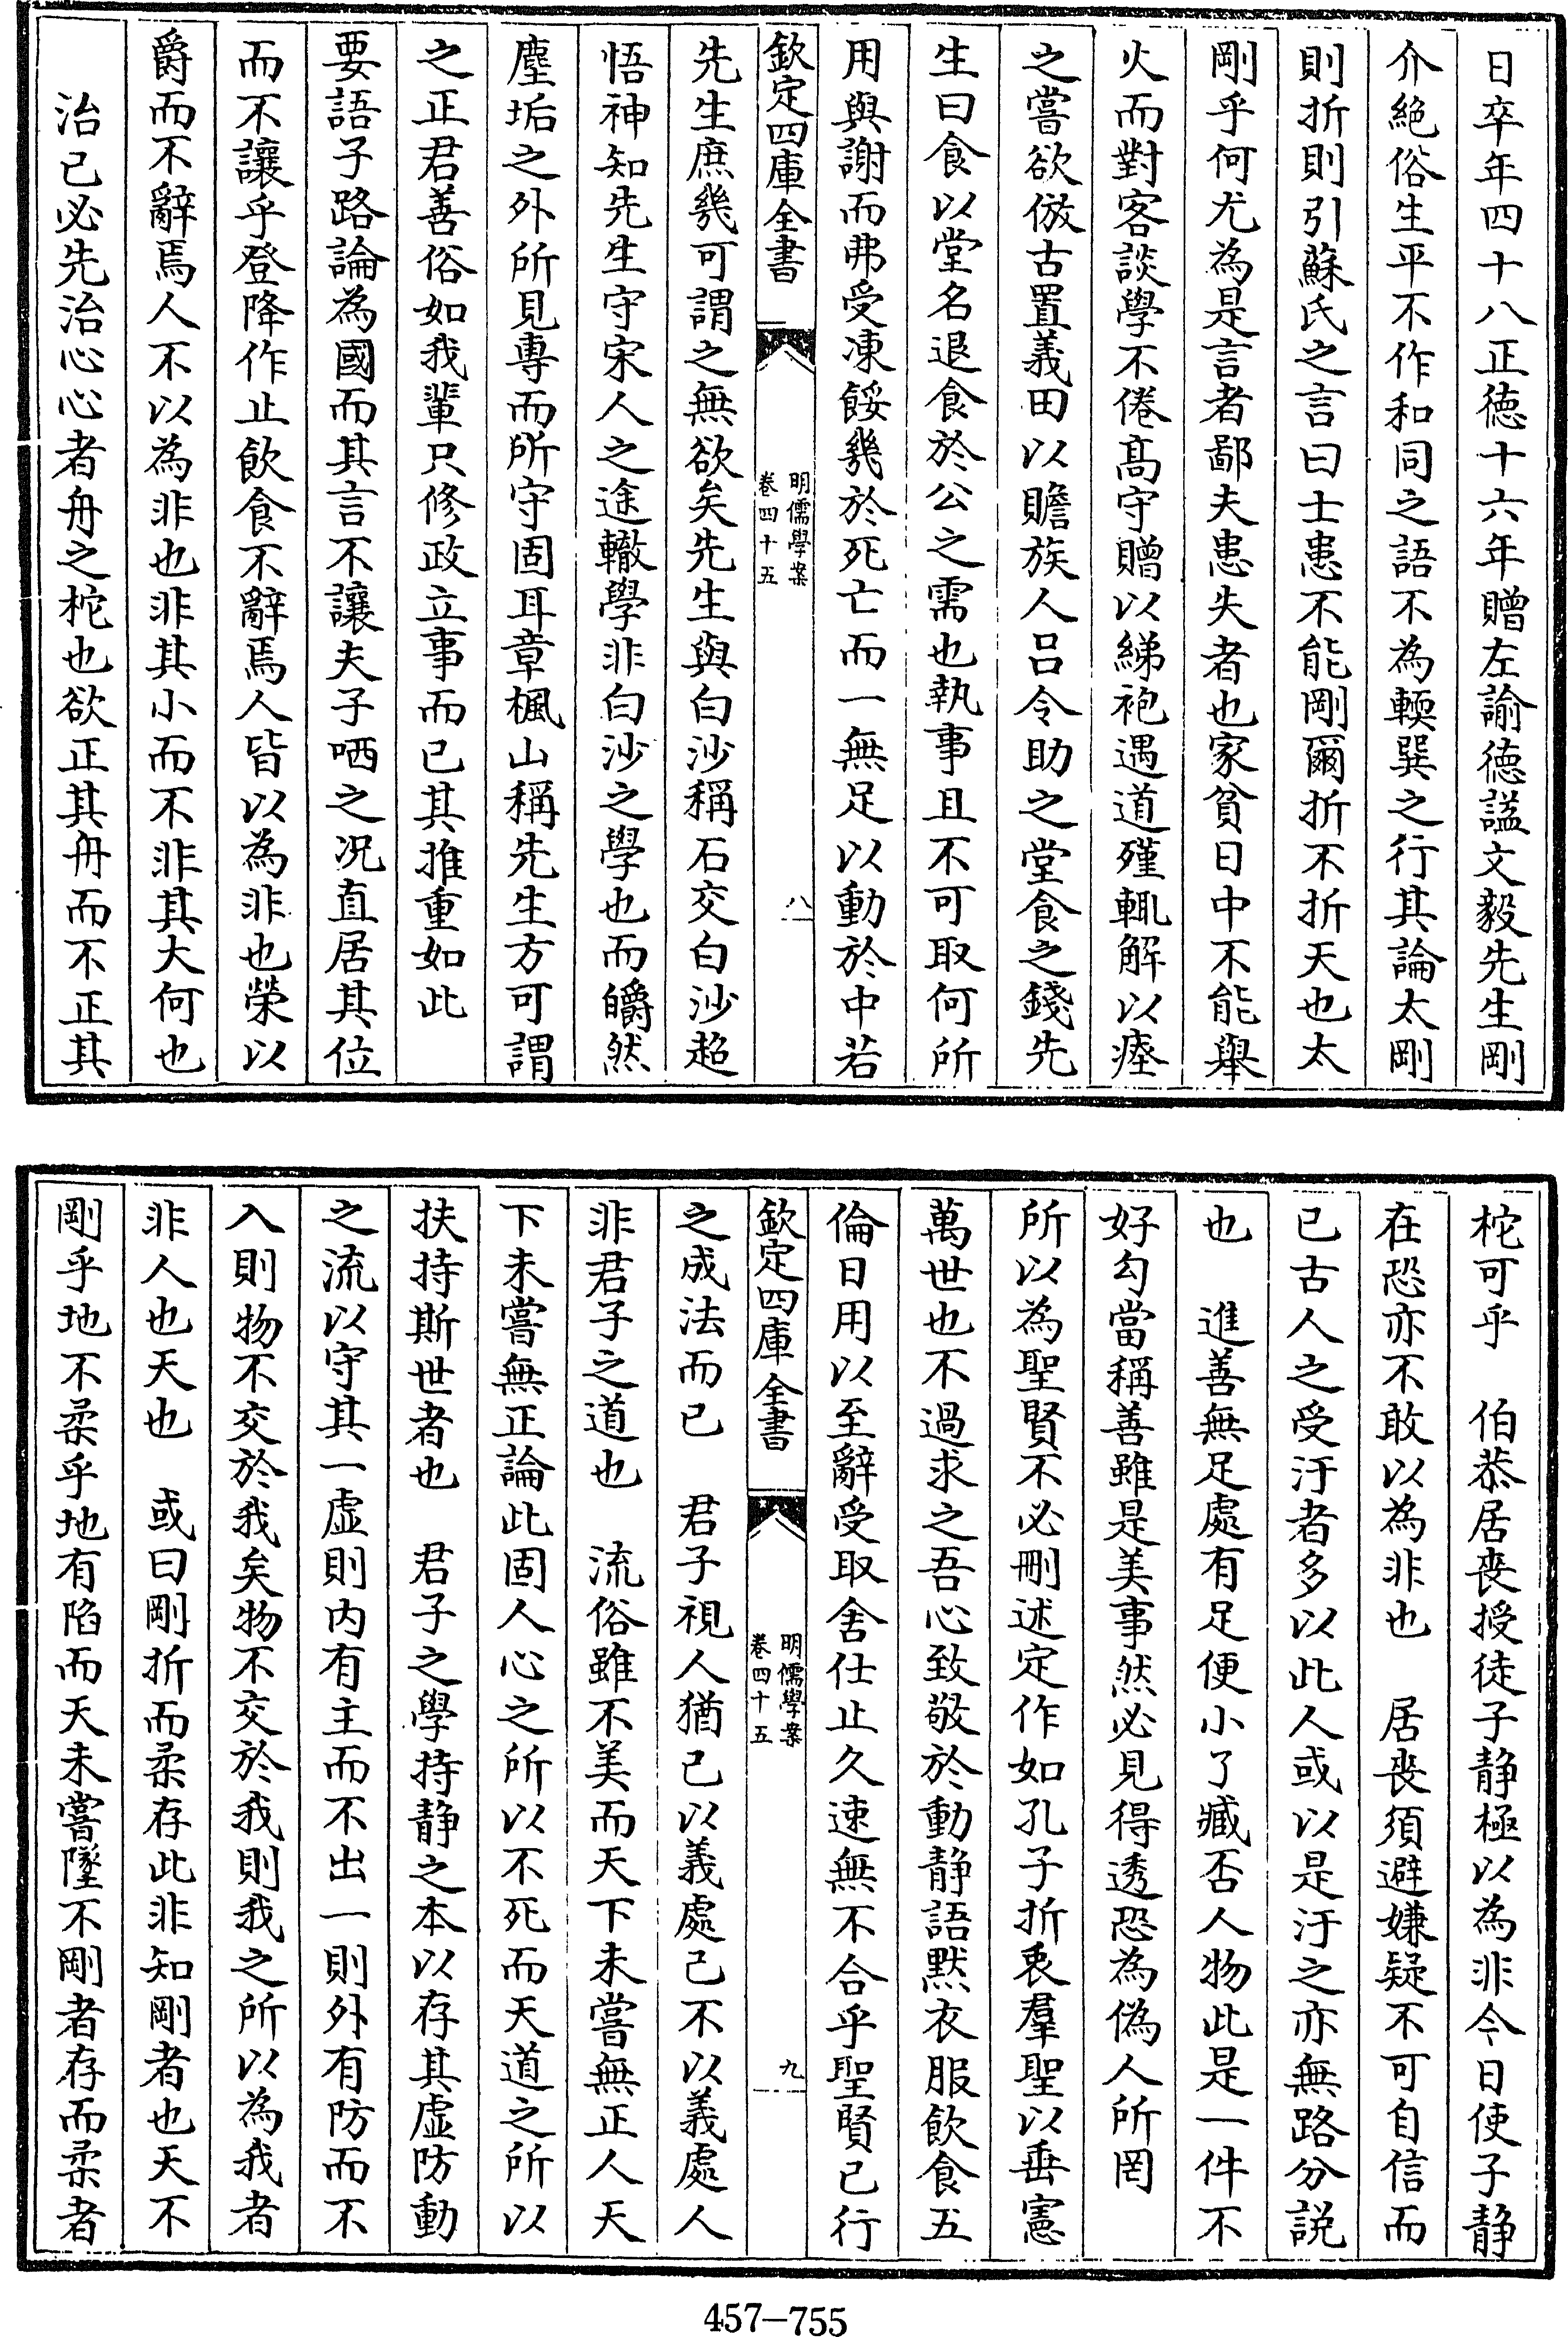 日卒年四十八正徳十六年贈左諭徳諡文毅先生剛
介絶俗生平不作和同之語不為輭巽之行其論太剛
則折則引蘇氏之言曰士患不能剛爾折不折天也太
剛乎何尤為是言者鄙夫患失者也家貧日中不能舉
火而對客談學不倦髙守贈以綈袍遇道殣輒解以瘞
之嘗欲倣古置義田以贍族人吕令助之堂食之錢先
生曰食以堂名退食於公之需也執事且不可取何所
用與謝而弗受凍餒幾於死亡而一無足以動於中若
欽定四庫全書
明儒學案
卷四十五
八
先生庶幾可謂之無欲矣先生與白沙稱石交白沙超
悟神知先生守宋人之途轍學非白沙之學也而皭然
塵垢之外所見專而所守固耳章楓山稱先生方可謂
之正君善俗如我輩只修政立事而已其推重如此
要語子路論為國而其言不讓夫子哂之况直居其位
而不讓乎登降作止飲食不辭焉人皆以為非也榮以
爵而不辭焉人不以為非也非其小而不非其大何也
治已必先治心心者舟之柁也欲正其舟而不正其
柁可乎　伯恭居喪授徒子静極以為非今日使子静
在恐亦不敢以為非也　居喪須避嫌疑不可自信而
已古人之受汙者多以此人或以是汙之亦無路分説
也　進善無足處有足便小了臧否人物此是一件不
好勾當稱善雖是美事然必見得透恐為偽人所罔
所以為聖賢不必刪述定作如孔子折衷羣聖以垂憲
萬世也不過求之吾心致敬於動静語黙衣服飲食五
倫日用以至辭受取舍仕止久速無不合乎聖賢已行
欽定四庫全書
明儒學案
卷四十五
九
之成法而已　君子視人猶己以義處己不以義處人
非君子之道也　流俗雖不美而天下未嘗無正人天
下未嘗無正論此固人心之所以不死而天道之所以
扶持斯世者也　君子之學持静之本以存其虛防動
之流以守其一虛則内有主而不出一則外有防而不
入則物不交於我矣物不交於我則我之所以為我者
非人也天也　或曰剛折而柔存此非知剛者也天不
剛乎地不柔乎地有陷而天未嘗墜不剛者存而柔者
457—755